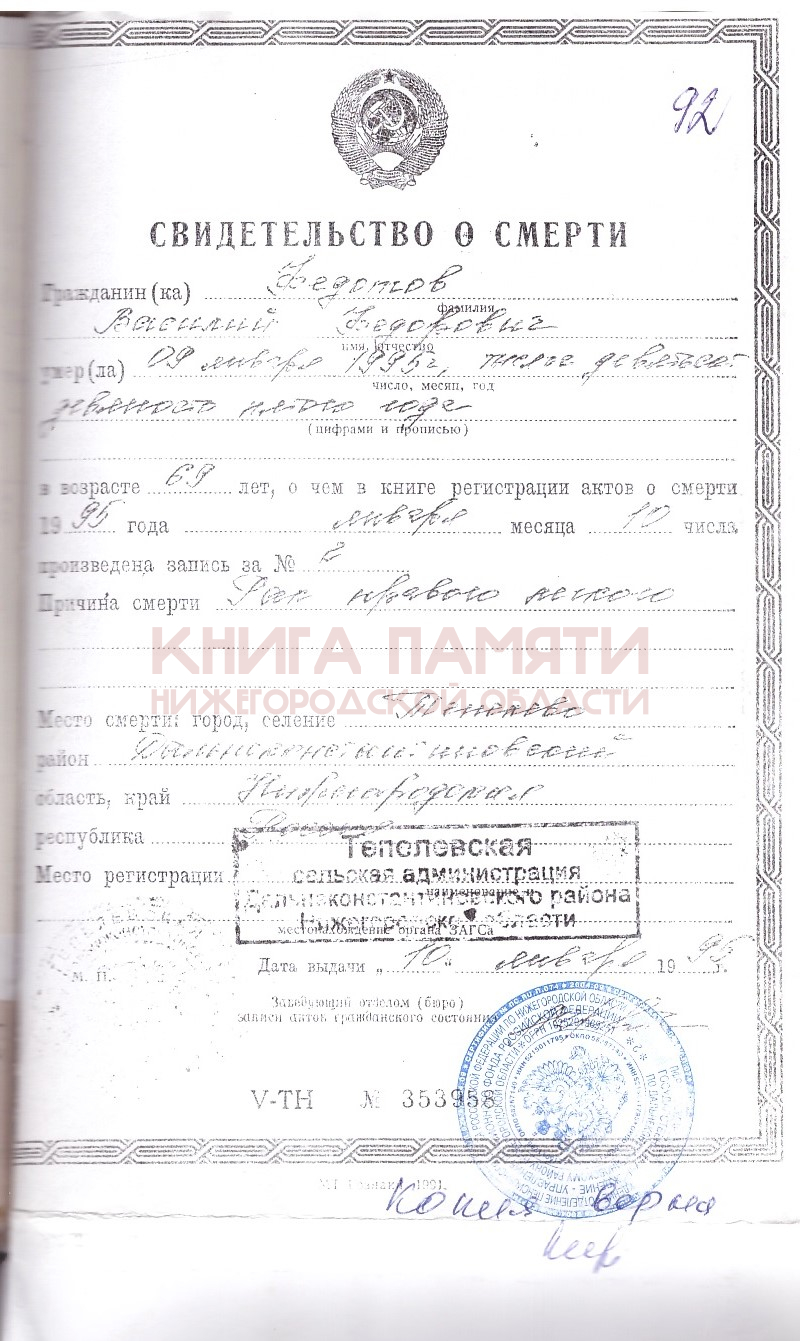 92
СВИДЕТЕЛЬСТВО О СМЕРТИ
Гражданин (ка) Федотов
фамилия
Василий Федорович
имя, отчество
умер(ла) 09 января 1995г, тысяча девятьсот
число, месяц, год
девяносто пятого года
(цифрами и прописью)
в возрасте 69 лет, о чем в книге регистрации актов о смерти
1995 года января месяца 10 числа
произведена запись за № 2
Причина смерти Рак правого легкого
КНИГА ПАМЯТИ
НИЖЕГОРОДСКОЙ ОБЛАСТИ
Место смерти: город, селение
район Дальнеконстантиновский
область, край Нижегородская
республика Россия
Место регистрации
Тепелевская
сельская администрация
наименование и
Дальнеконстантиновского района
Нижегородской области
местонахождение органа ЗАГСа
М. П.
Дата выдачи „10" января 1995 г.
Заведующий отделом (бюро)
записи актов гражданского состояния
V-ТН № 353958
1991.
Копия верна